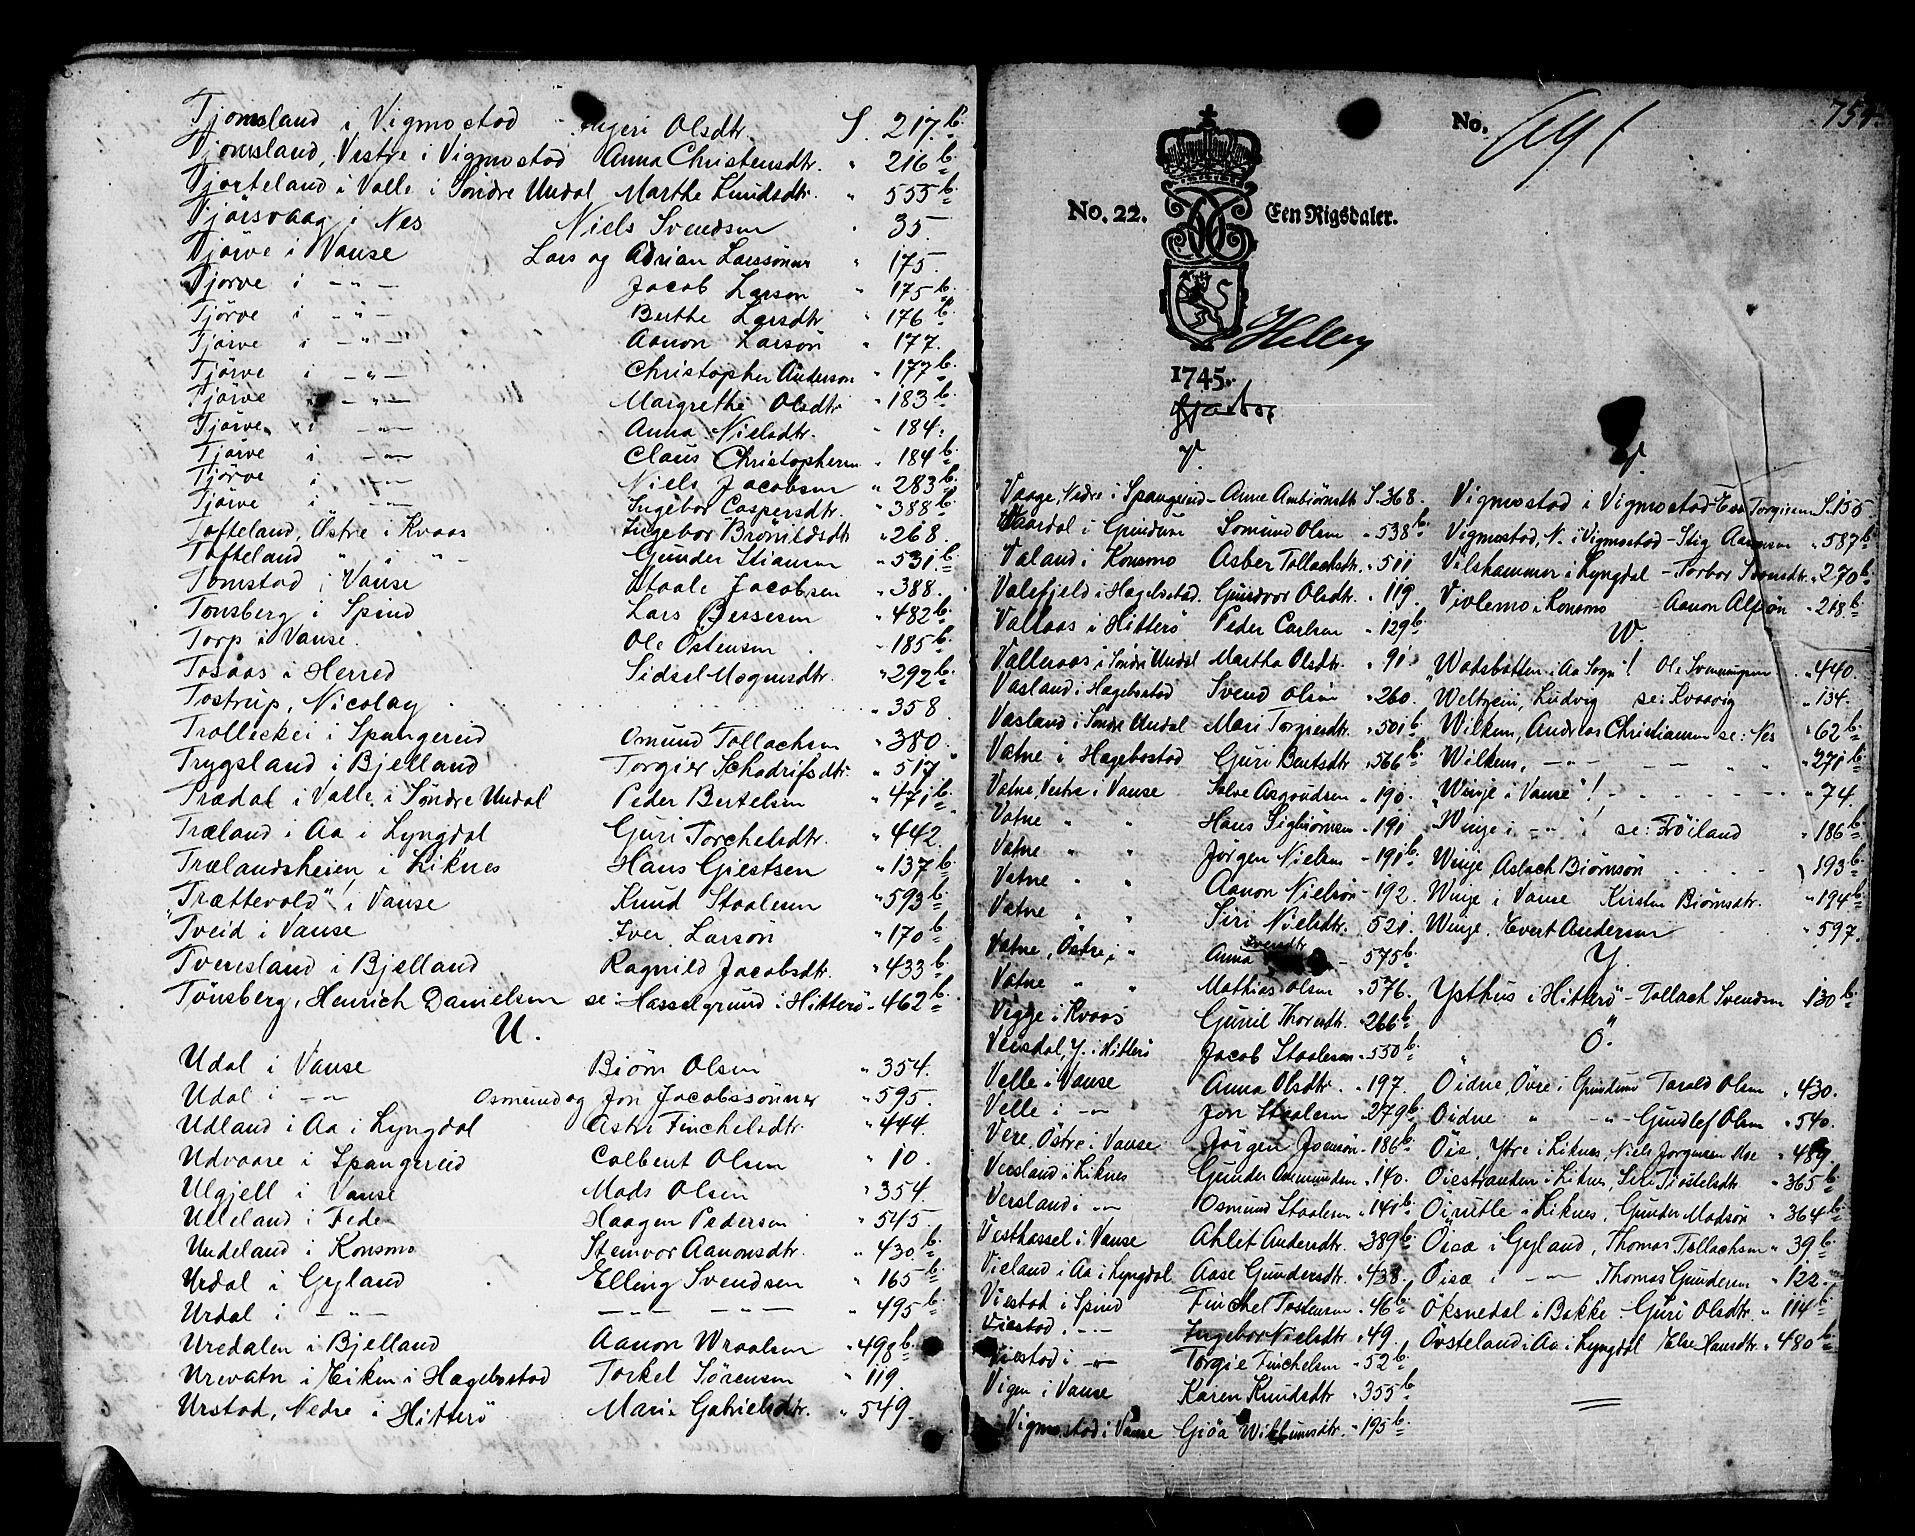 Tjomsland i Vigmostad Ingeri Olsdtr. S. 217.b.
Tjomsland, Vestre i Vigmostad Anna Christensdtr. " 216 b.
Tjorteland i Valle i Söndre Undal Marthe Knudsdtr. " 555 b.
Tjörsvaag i Nes Niels Svendsen " 35.
Tjörve i Vanse Lars og Adrian Larssönner " 175.
Tjörve i - " - Jacob Larson " 175 b.
Tjörve i - " - Berthe Larsdtr. " 176 b.
Tjörve i - " - Aanon Larsön " 177.
Tjörve i - " - Christopher Anderson " 177 b.
Tjörve - " - Margrethe Olsdtr. " 183 b.
Tjörve i - " - Anna Nielsdtr. " 184.
Tjörve i - " - Claus Christophersen " 184 b.
Tjörve i - " - Niels Jacobsen " 283 b.
Tjörve i - " - Ingebor Caspersdtr. " 388 b.
Tofteland, Östre i Kvaas Ingebor Brönildsdtr " 268.
Tofteland " i " - Gunder Stiansen " 531. b.
Tomstad i Vanse Staale Jacobsen " 388.
Tonsberg i Spind Lars Bessesen " 482 b.
Torp i Vanse. Ole Östensen " 185 b.
Tosaas i Herred Sidsel Mogensdtr. " 292 b.
Tostrup, Nicolay " 358.
Trolleckei i Spangereid Osmund Tollachsen " 380.
Trygsland i Bjelland Torgier Schadrifsdtr. " 517
Trædal i Valle i Söndre Undal Peder Bertelsen " 471 b.
Træland i Aa i Lyngdal Guri Torchelsdtr. " 442.
Trælandsheien i Liknes Hans Giestsen " 137 b.
"Trættevold"! i Vanse Knud Staalesen " 593 b.
Tveid i Vanse Iver Larsön " 170 b.
Tveresland i Bjelland Ragnild Jacobsdtr. " 433 b.
Tønsberg, Henrich Danielsen se: Hasselgrund i Hitterö " 462 b.
U.
Udal i Vanse Biörn Olsen " 354.
Udal i - " - Osmund og Jon Jacobssönner " 595.
Udland i Aa i Lyngdal Astri Finchelsdtr. " 444.
Udvaare i Spangereid Colbent Olsen " 10.
Ulgjell i Vanse Mads Olsen " 354.
Ulleland i Feden Haagen Pedersen " 545.
Undeland i Konsmo Stemvor Aanonsdtr. " 430 b.
Urdal i Gyland Elling Svendsen " 165 b.
Urdal i - " - - " - - " - " 495 b.
Uredalen i Bjelland Aanon Wraalsen " 498 b.
Urevatn i Eiken i Hægebostad Torkel Sørensen " 119
Urstad, Nedre i Hitterö Mari Gabrielsdtr. " 549.
754.
No. 691
No. 22. Een Rigsdaler.
Helley
1745.
V.
Vaage, Nedre i Spangereid - Anne Ambiörnsdtr S. 368.
Vaardal i Grindum Somund Olsen " 538 b.
Valand i Konsmo Asber Tollachsdtr. " 511
Valefjeld i Hægebostad. Gundvor Olsdtr. " 119
Vallaas i Hitterö Peder Carlsen " 129 b.
Valleraas i Söndre Undal Martha Olsdtr. " 91.
Vasland i Hægebostad Svend Olsön " 260.
Vasland i Söndre Undal Mari Torgiersdtr. " 501 b.
Vatne i Hægebostad Guri Bentsdtr " 566 b.
Vatne, Vestre i Vanse Salve Asgoudsen " 190.
Vatne " " Hans Sigbiörnsen " 191
Vatne " " Jörgen Nielsen " 191 b.
Vatne " " Aanon Nielsön " 192.
Vatne " " Siri Nielsdtr. 521.
Vatne, Östre i " Anna Svendtr - 575 b.
Vatne " " Mathias Olsen " 576.
Vigge i Kvaas Gunil Thorsdtr. " 266 b.
Veisdal, Y. i Hitterö Jacob Staalesen " 550 b.
Velle i Vanse Anna Olsdtr. " 197
Velle i - " - Jon Staalesen " 279 b.
Vere, Östre i Vanse Jörgen Joensön " 186 b.
Versland i Liknes Gunder Aamundsen " 140.
Versland i - " - Osmund Staalesen " 141 b.
Vesthassel i Vanse Ahlet Andersdtr. " 389 b.
Vieland i Aa i Lyngdal Aase Gundersdtr. " 438.
Viestad i Spind Finchel Tostensen " 46 b.
Viestad i - " - Ingebor Nielsdtr. " 49.
Viestad i - " - Torgie Finchelsen " 52 b.
Vigen i Vanse Karen Knudsdtr " 355 b.
Vigmostad i Vanse Giöa Willumsdtr. " 195 b.
V.
Vigmostad i Vigmostad - Eva Torgiersen S. 155
Vigmostad, N. i Vigmostad - Stig Aanonsen " 587 b.
Vilshammer i Lyngdal - Torbor Svensdtr. " 270 b.
Violemo i Konsmo - Aanon Alfsön " 218 b.
W.
"Wadsbatten i Aa Sogn"! Ole Svenningsen " 440.
Weltzein, Ludvig se: Kvaavig " 134.
Wilken, Andreas Christiansen se: Nes " 62 b.
Wilken, - " - - - " " " 271 b.
"Winje i Vanse"! " 74.
"Winje i - " - ! se: Fröiland " 186 b.
Winje, Aslach Biörnsön " 193 b.
Winje i Vanse Kirsten Biörnsdtr. " 194 b.
Winje, Evert Andersen " 597.
Y.
Ysthus i Hitterö - Tollach Svendsen " 130 b.
Ö.
Öidne, Övre i Grindum Tarald Olsen " 430.
Öidne " - " - Gundlef Olsen " 540.
Öie, Ytre i Liknes, Niels Jörgensen Moe " 489.
Öiestranden i Liknes, Siri Tostelsdtr " 365 b.
Öirutle i Liknes, Gunder Madsön " 364 b.
Öisæ i Gyland, Thomas Tollachsen " 39 b.
Öisæ i - " - Thomas Gundersen " 122.
Öksnedal i Bakke - Guri Olsdtr. " 114 b.
Övsteland i Aa i Lyngdal Else Hansdtr. " 480 b.